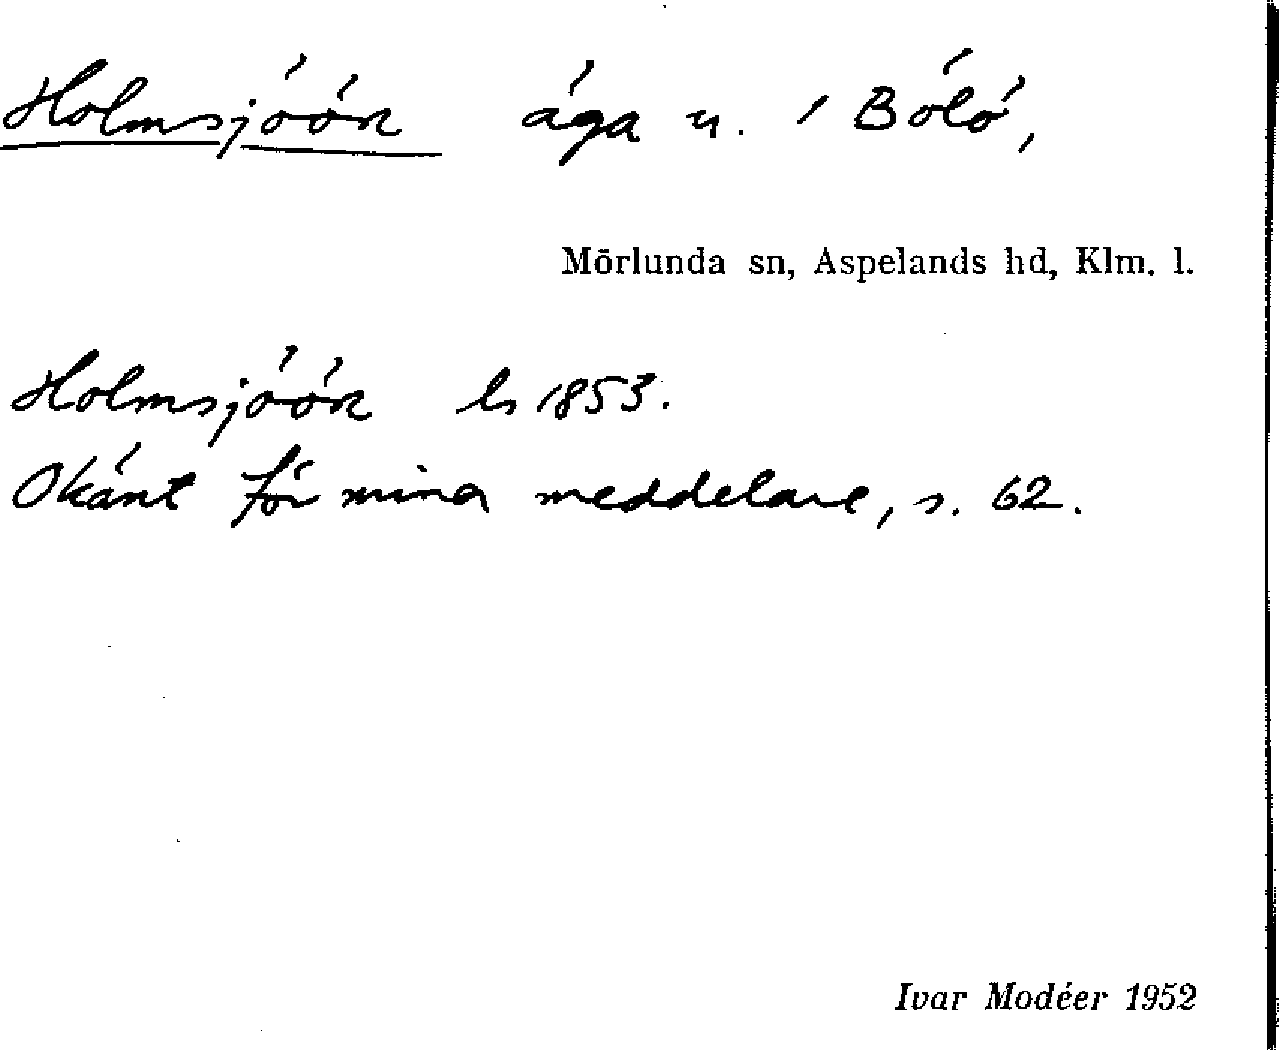 Holmsjöön äga u. 1 Bölö,
Mörlunda sn, Aspelands hd, Klm. l.
Holmsjöön ls 1853.
Okänt för mina meddelare, s. 62.
Ivar Modéer 1952